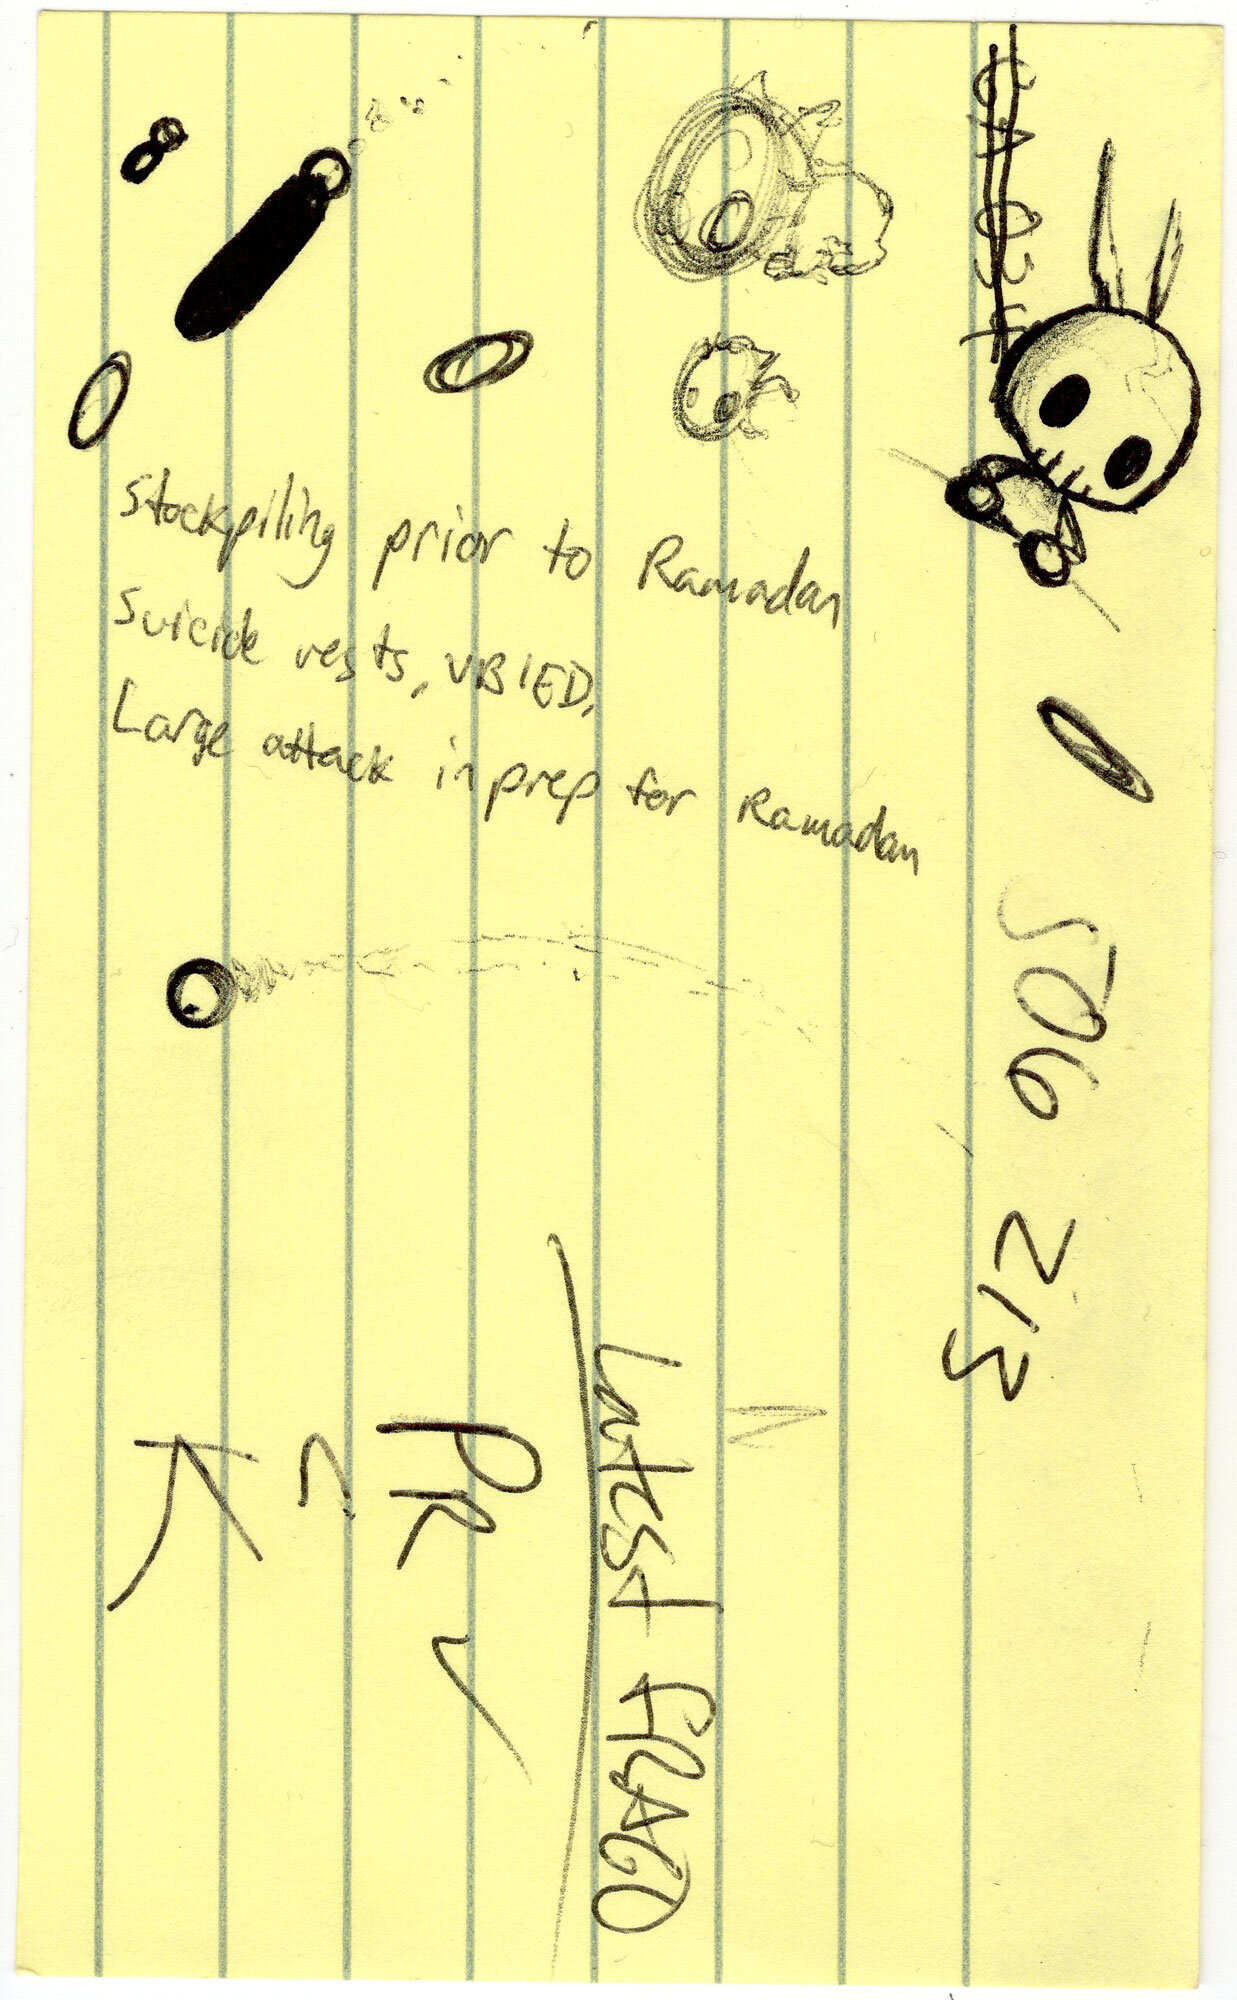 Stockpiling prior to Ramadan
Suicide vests, VBIED,
Large attack in prep for Ramadan
506, 213
Latest FRAGO
PR